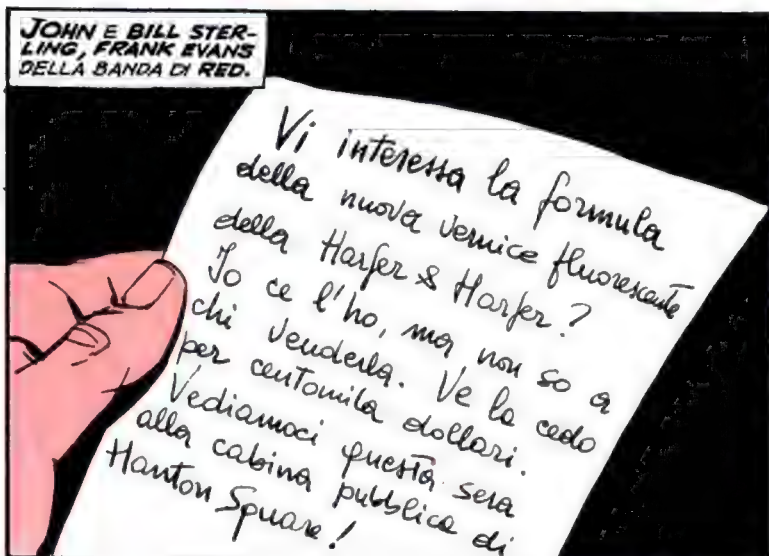 JOHN E BILL STER-
LING, FRANK EVANS
DELLA BANDA DI RED.
Vi interessa la formula
della nuova vernice fluorescente
della Harfer & Harfer?
Io ce l'ho, ma non so a
chi venderla. Ve la cedo
per centomila dollari.
Vediamoci questa sera
alla cabina pubblica di
Hanton Square!